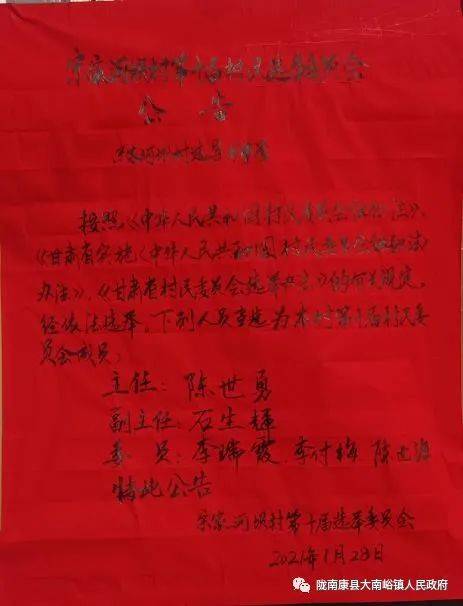 宋家河坝村第十届村民选举委员会
公 告
宋家河坝村选举
按照《中华人民共和国村民委员会组织法》、
《甘肃省实施〈中华人民共和国村民委员会组织法〉
办法》、《甘肃省村民委员会选举办法》的有关规定,
经依法选举,下列人员当选为本村第十届村民委
员会成员:
主任:陈世勇
副主任:石生辉
委 员:李瑞霞、李付梅、陈
特此公告
宋家河坝村第十届选举委员会
2021年1月28日
陇南康县大南峪镇人民政府